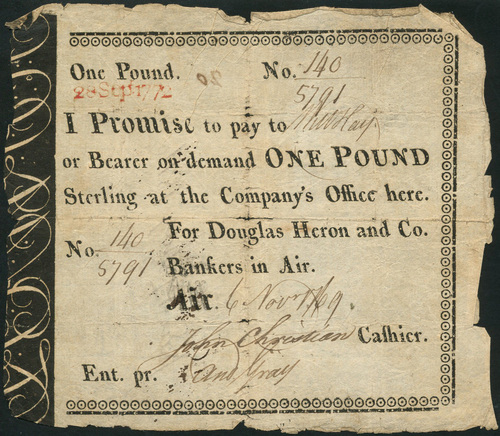 One Pound. No. 140
28 Sep 1772
5791
I Promise to pay to
or Bearer on demand ONE POUND
Sterling at the Company's Office here.
No. 140
5791
For Douglas Heron and Co.
Bankers in Air.
Air. 6 Novr 1769
John Christian Cashier.
Ent. pr. And Gray